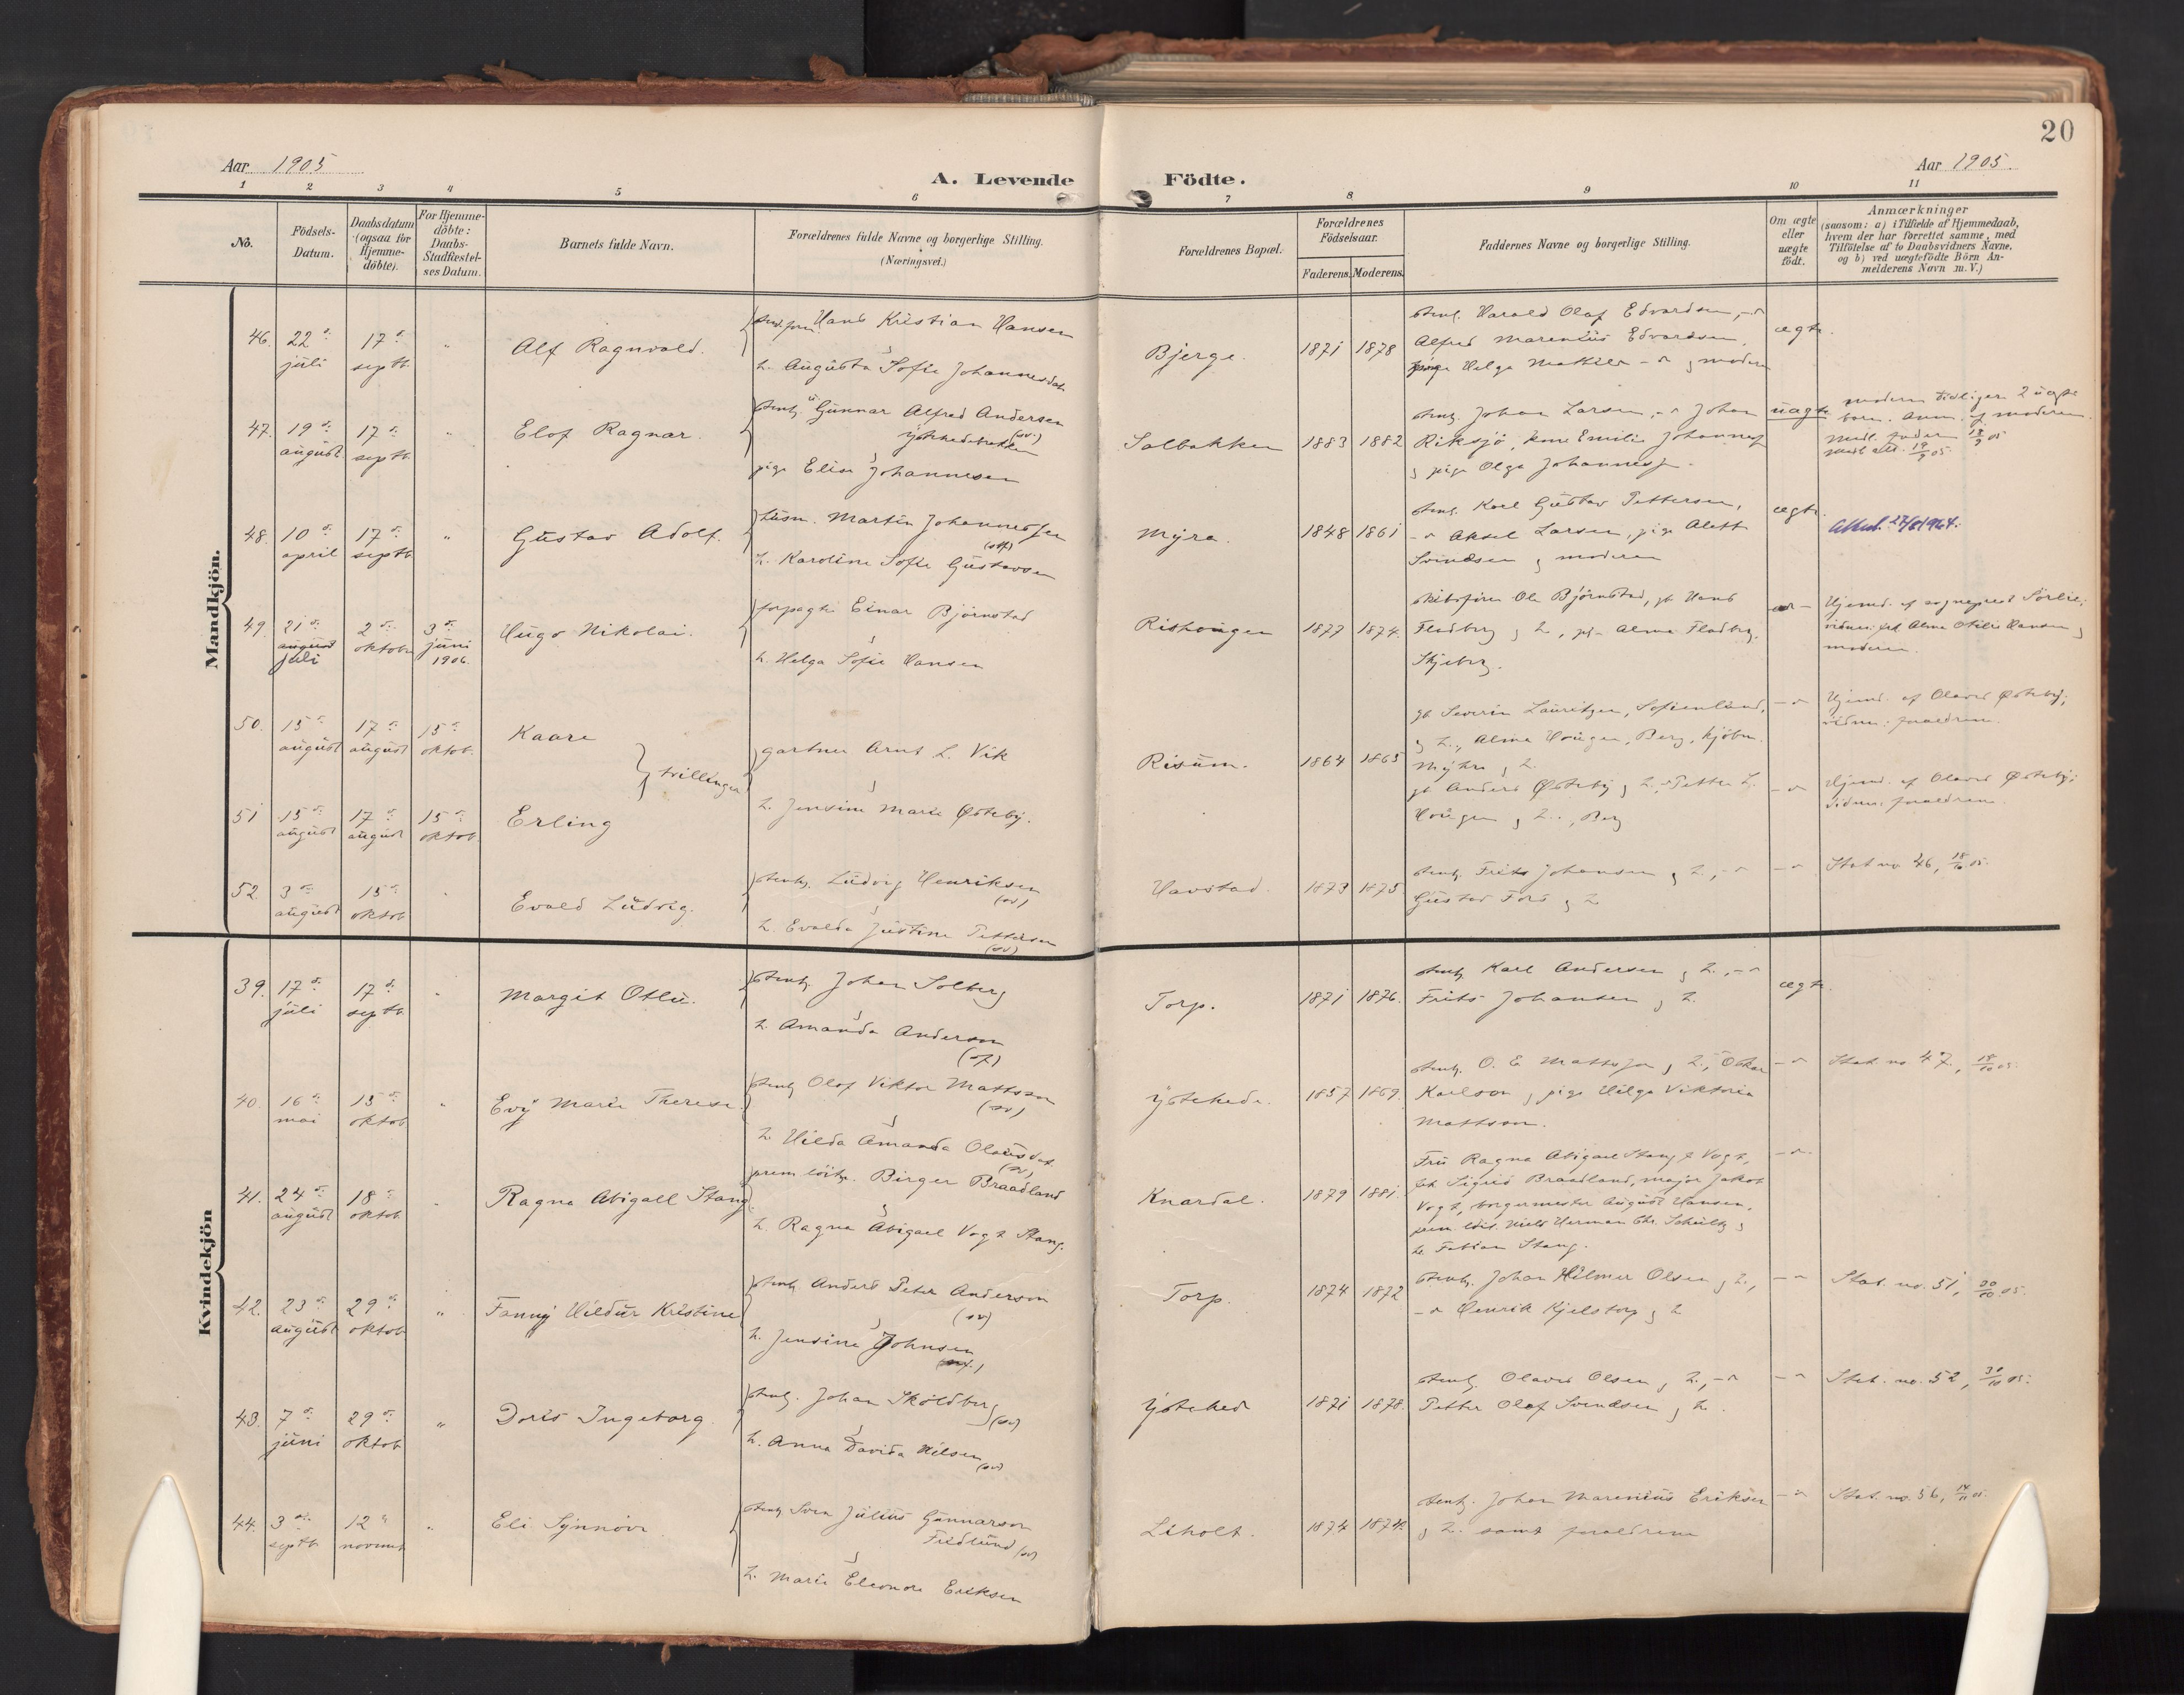 20
Aar 1905
A. Levende Födte.
Aar 1905.
1 2 3 4 5 6 7 8 9 10 11
No.
Födsels-
Datum.
Daabsdatum
(ogsaa for
Hjemme-
döbte).
For Hjemme-
döbte:
Daabs-
Stadfæstel-
ses Datum.
Barnets fulde Navn.
Forældrenes fulde Navne og borgerlige Stilling.
(Næringsvei.)
Forældrenes Bopæl.
Forældrenes
Födselsaar.
Faderens. Moderens.
Faddernes Navne og borgerlige Stilling.
Om ægte
eller
uægte
födt.
Anmærkninger
(saasom: a) i Tilfælde af Hjemmedaab,
hvem der har forrettet samme, med
Tilföielse af to Daabsvidners Navne,
og b) ved uægtefödte Börn An-
melderens Navn m. V.)
Mandkjön.
46. 22 juli 17 septb. " Alf Ragnvald.
Hans Kristian Hansen
h. Augusta Sofie Johannesdat.
Bjerge. 1871 1878
stenh. Harald Olaf Edvardsen,
Alfred Marenius Edvardsen,
pige Helga Mathilde & moderen
ægte.
47. 19 august 17 septb. " Elof Ragnar.
stenh. Gunnar Alfred Andersen (sv.)
pige Elise Johannesen
Solbakken 1883 1882
stenh. Johan Larsen, Johan
Riksjö, kone Emilie Johannesf
& pige Olga Johannesf.
uægte
moderen tidligere 2 uægte
born. anm. af moderen.
48. 10 april 17 septb. " Gustav Adolf.
husm. Martin Johannessen
h. Karoline Sofie Gustavsen
Myra. 1848 1861
stenh. Karl Gustav Pettersen,
Aksel Larsen, pige Alett
Svindsen & moderen
ægte.
27/8 1964.
49. 21 august juli 2 oktober 3 juni 1906. Hugo Nikolai.
forpagter Einar Björnstad
&
h. Helga Sofie Hansen
Rishougen 1877 1874.
skibsfører Ole Björnstad, gb. Hans
Fladberg & h., pige Alma Fladberg,
Skjeberg.
Hjemd. af sognepræst Sörlie;
vidner: frk Alma Otilie Hansen &
moderen.
50. 15 august 17 august 15 oktob. Kaare
tvillinger
gartner Arnt L. Vik
&
h. Jensine Marie Østeby.
Risum. 1864 1865
gb. Severin Lauritzen, Sofienlund,
& h., Alma Hougen, Berg, kjöbm.
Myhre & h.
Hjemd. af Olaves Østeby;
vidner: forældrene.
51 15 august 17 august 15 oktob. Erling
gb. Anders Østeby & h., Petter L.
Hougen & h., Berg
Hjemd. af Olaves Østeby;
vidner: forældrene.
52. 3 august 15 oktob. " Evald Ludvig.
stenh. Ludvig Henriksen (sv)
&
h. Evalda Justine Pettersen (sv)
Havstad. 1873 1875
stenh. Frits Johansen & h.,
Gustav Fors & h.
Stat. no. 46, 18/10 05.
Kvindekjön
39. 17 juli 17 septb. " Margit Otlie.
stenh. Johan Solberg
&
h. Amanda Anderson
Torp. 1871 1876.
stenh. Karl Andersen & h.,
Frits Johansen & h.
ægte.
40. 16 mai 15 oktob. " Evy Marie Therese.
stenh. Olof Viktor Mattsson (sv)
&
h. Hilda Amanda Olausdat. (sv)
Ystehede. 1857 1869.
stenh. O. E. Mattsson & h., Oskar
Karlson & pige Helga Viktoria
Mattson.
Stat. no 47, 18/10 05.
41. 24 august 18 oktob. " Ragna Abigail Stang.
prem. löitn. Birger Braadland
&
h. Ragna Abigael Vogt Stang.
Knardal. 1879 1881.
Fru Ragna Abigael Stang f. Vogt,
frk Sigrid Braadland, major Jakob
Vogt, borgermester August Hansen,
prem. löit. Niels Herman Chr. Schultz &
hr. Fabian Stang.
42. 23 august 29 oktob. " Fanny Hildur Kristine
stenh. Anders Peter Anderson (sv)
&
h. Jensine Johnsen
Torp. 1874 1872
stenh. Johan Hilmer Olsen & h.,
Henrik Kjelstorp & h
Stat. no. 51, 30/10 05.
43. 7 juni 29 oktob. " Doris Ingeborg.
stenh. Johan Sköldberg (sv)
&
h. Anna Davida Nilsen (sv)
Ystehed 1871 1878.
stenh. Olaves Olsen & h.,
Petter Olof Svendsen & h.
Stat. no. 52, 30/10 05.
44. 3 septb. 12 novemb. " Eli Synnöve
stenh. Sven Julius Gunnarson
Fridlund (sv)
&
h. Marie Eleonore Eriksen
Liholt. 1874 1874.
stenh. Johan Marenius Eriksen
& h. samt forældrene
Stat. no. 56, 14/11 05.